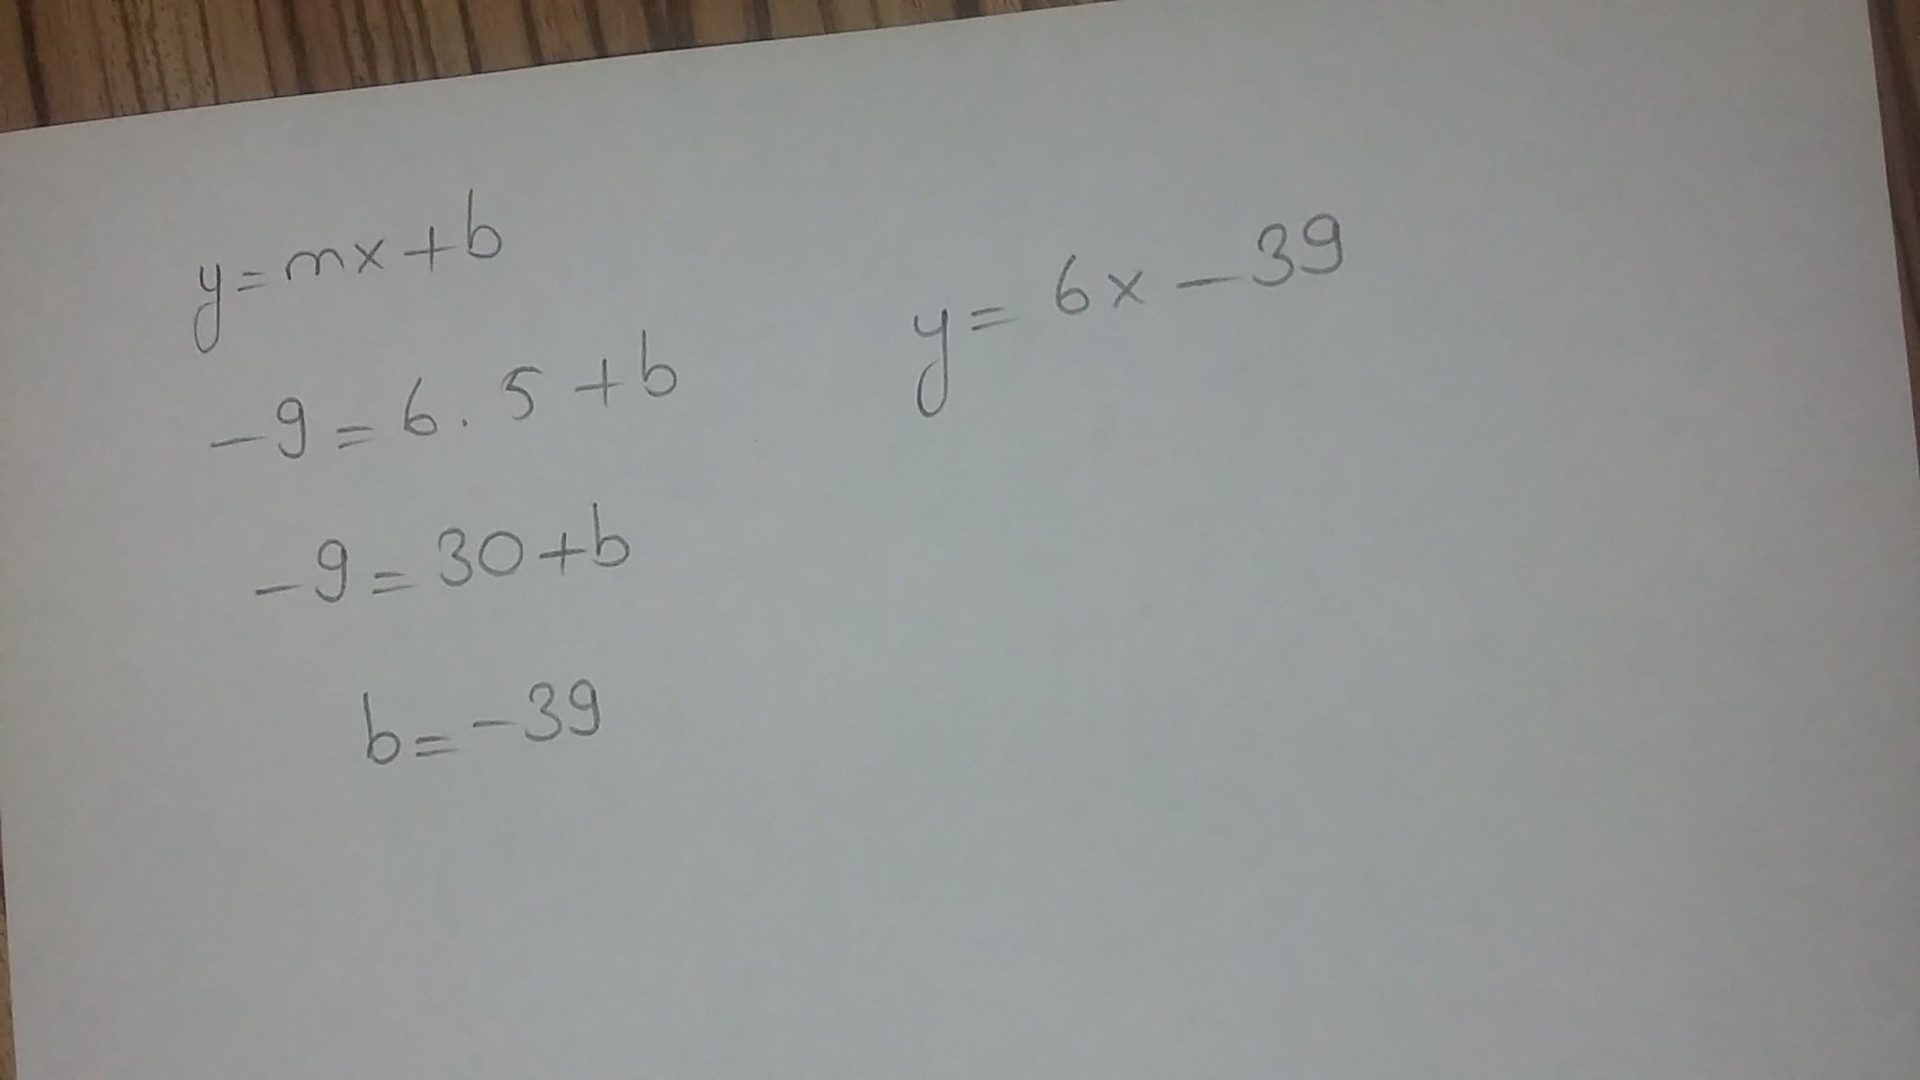 y = mx + b
-9 = 6 . 5 + b
-9 = 30 + b
b = -39
y = 6x - 39